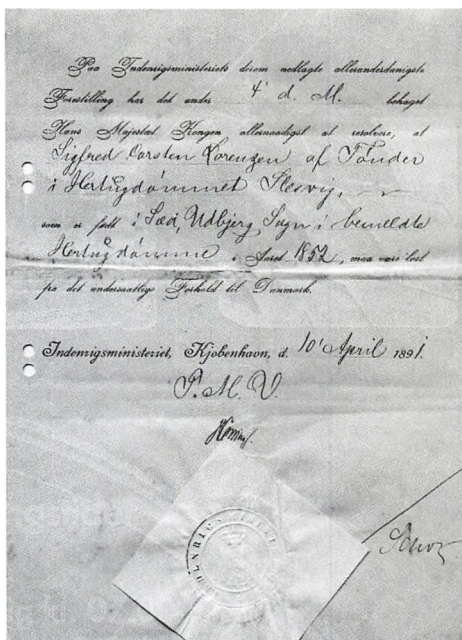 Paa Indenrigsministeriets derom nedlagte allerunderdanigste
Forestilling har det under 4' d. M. behaget
Hans Majestæt Kongen allernaadigst at resolvere, at
Sigfred Carsten Lorenzen af Tønder
i Hertugdømmet Slesvig,
som er født i Sæd, Udbjerg Sogn i bemeldte
Hertugdømme i Aaret 1852, maa være løst
fra det undersaatlige Forhold til Danmark.
Indenrigsministeriet, Kjøbenhavn, d. 10' April 1891.
P. M. V.